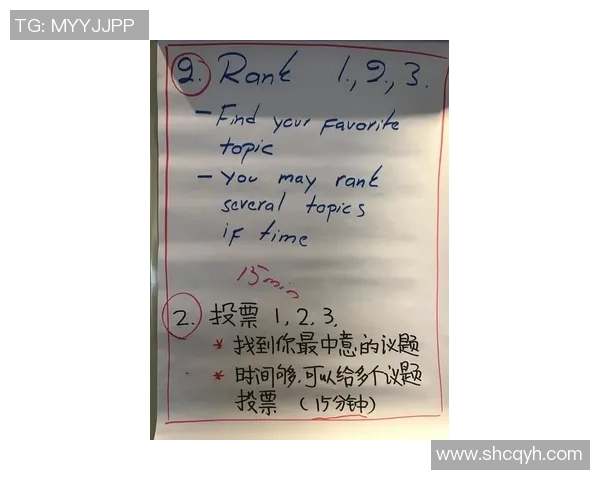 TG: MYYJJPP
2. Rank 1., 2., 3.
- Find your Favorite
topic
- You may rank
several topics
if time
15 min
2. 投票 1, 2, 3,
* 找到你最中意的议题
* 时间够,可以给多个议题
投票 (15分钟)
www.shcqyh.com